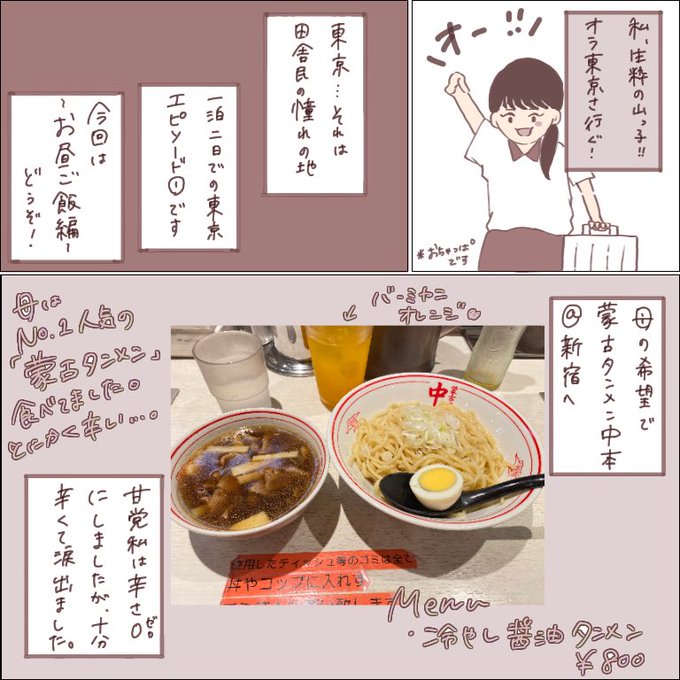 私、生粋の山っ子!!
オラ東京さ行ぐ!
オー!!!
*おちゃっぱ°
です
東京…それは
田舎民の憧れの地
一泊二日での東京
エピソード①です
今回は
~お昼ご飯編~
どうぞ!
母の希望で
蒙古タンメン中本
@新宿へ
バーミヤニ
オレンジ
母は
No.1人気の
「蒙古タンメン」
食べてました。
とにかく辛い…。
中
使用したティッシュ等のゴミは全て
丼やコップに入れず
甘党私は辛さ0ゼロ
にしましたが、十分
辛くて涙出ました。
Menu
・冷やし醤油タンメン
¥800